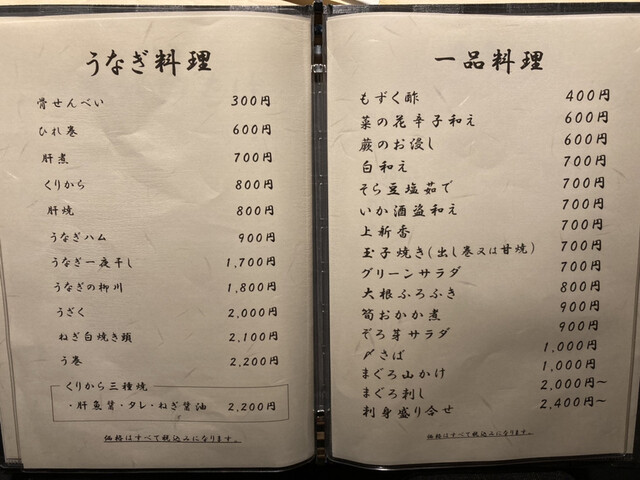 うなぎ料理
骨せんべい 300円
ひれ巻 600円
肝煮 700円
くりから 800円
肝焼 800円
うなぎハム 900円
うなぎ一夜干し 1,700円
うなぎの柳川 1,800円
うざく 2,000円
ねぎ白焼き頭 2,100円
う巻 2,200円
くりから三種焼
・肝魚醤・タレ・ねぎ醤油 2,200円
価格はすべて税込みになります。
一品料理
もずく酢 400円
菜の花辛子和え 600円
蕨のお浸し 600円
白和え 700円
そら豆塩茹で 700円
いか酒盗和え 700円
上新香 700円
玉子焼き(出し巻又は甘焼) 700円
グリーンサラダ 700円
大根ふろふき 800円
筍おかか煮 900円
ぞろ芽サラダ 900円
〆さば 1,000円
まぐろ山かけ 1,000円
まぐろ刺し 2,000円～
刺身盛り合せ 2,400円～
価格はすべて税込みになります。